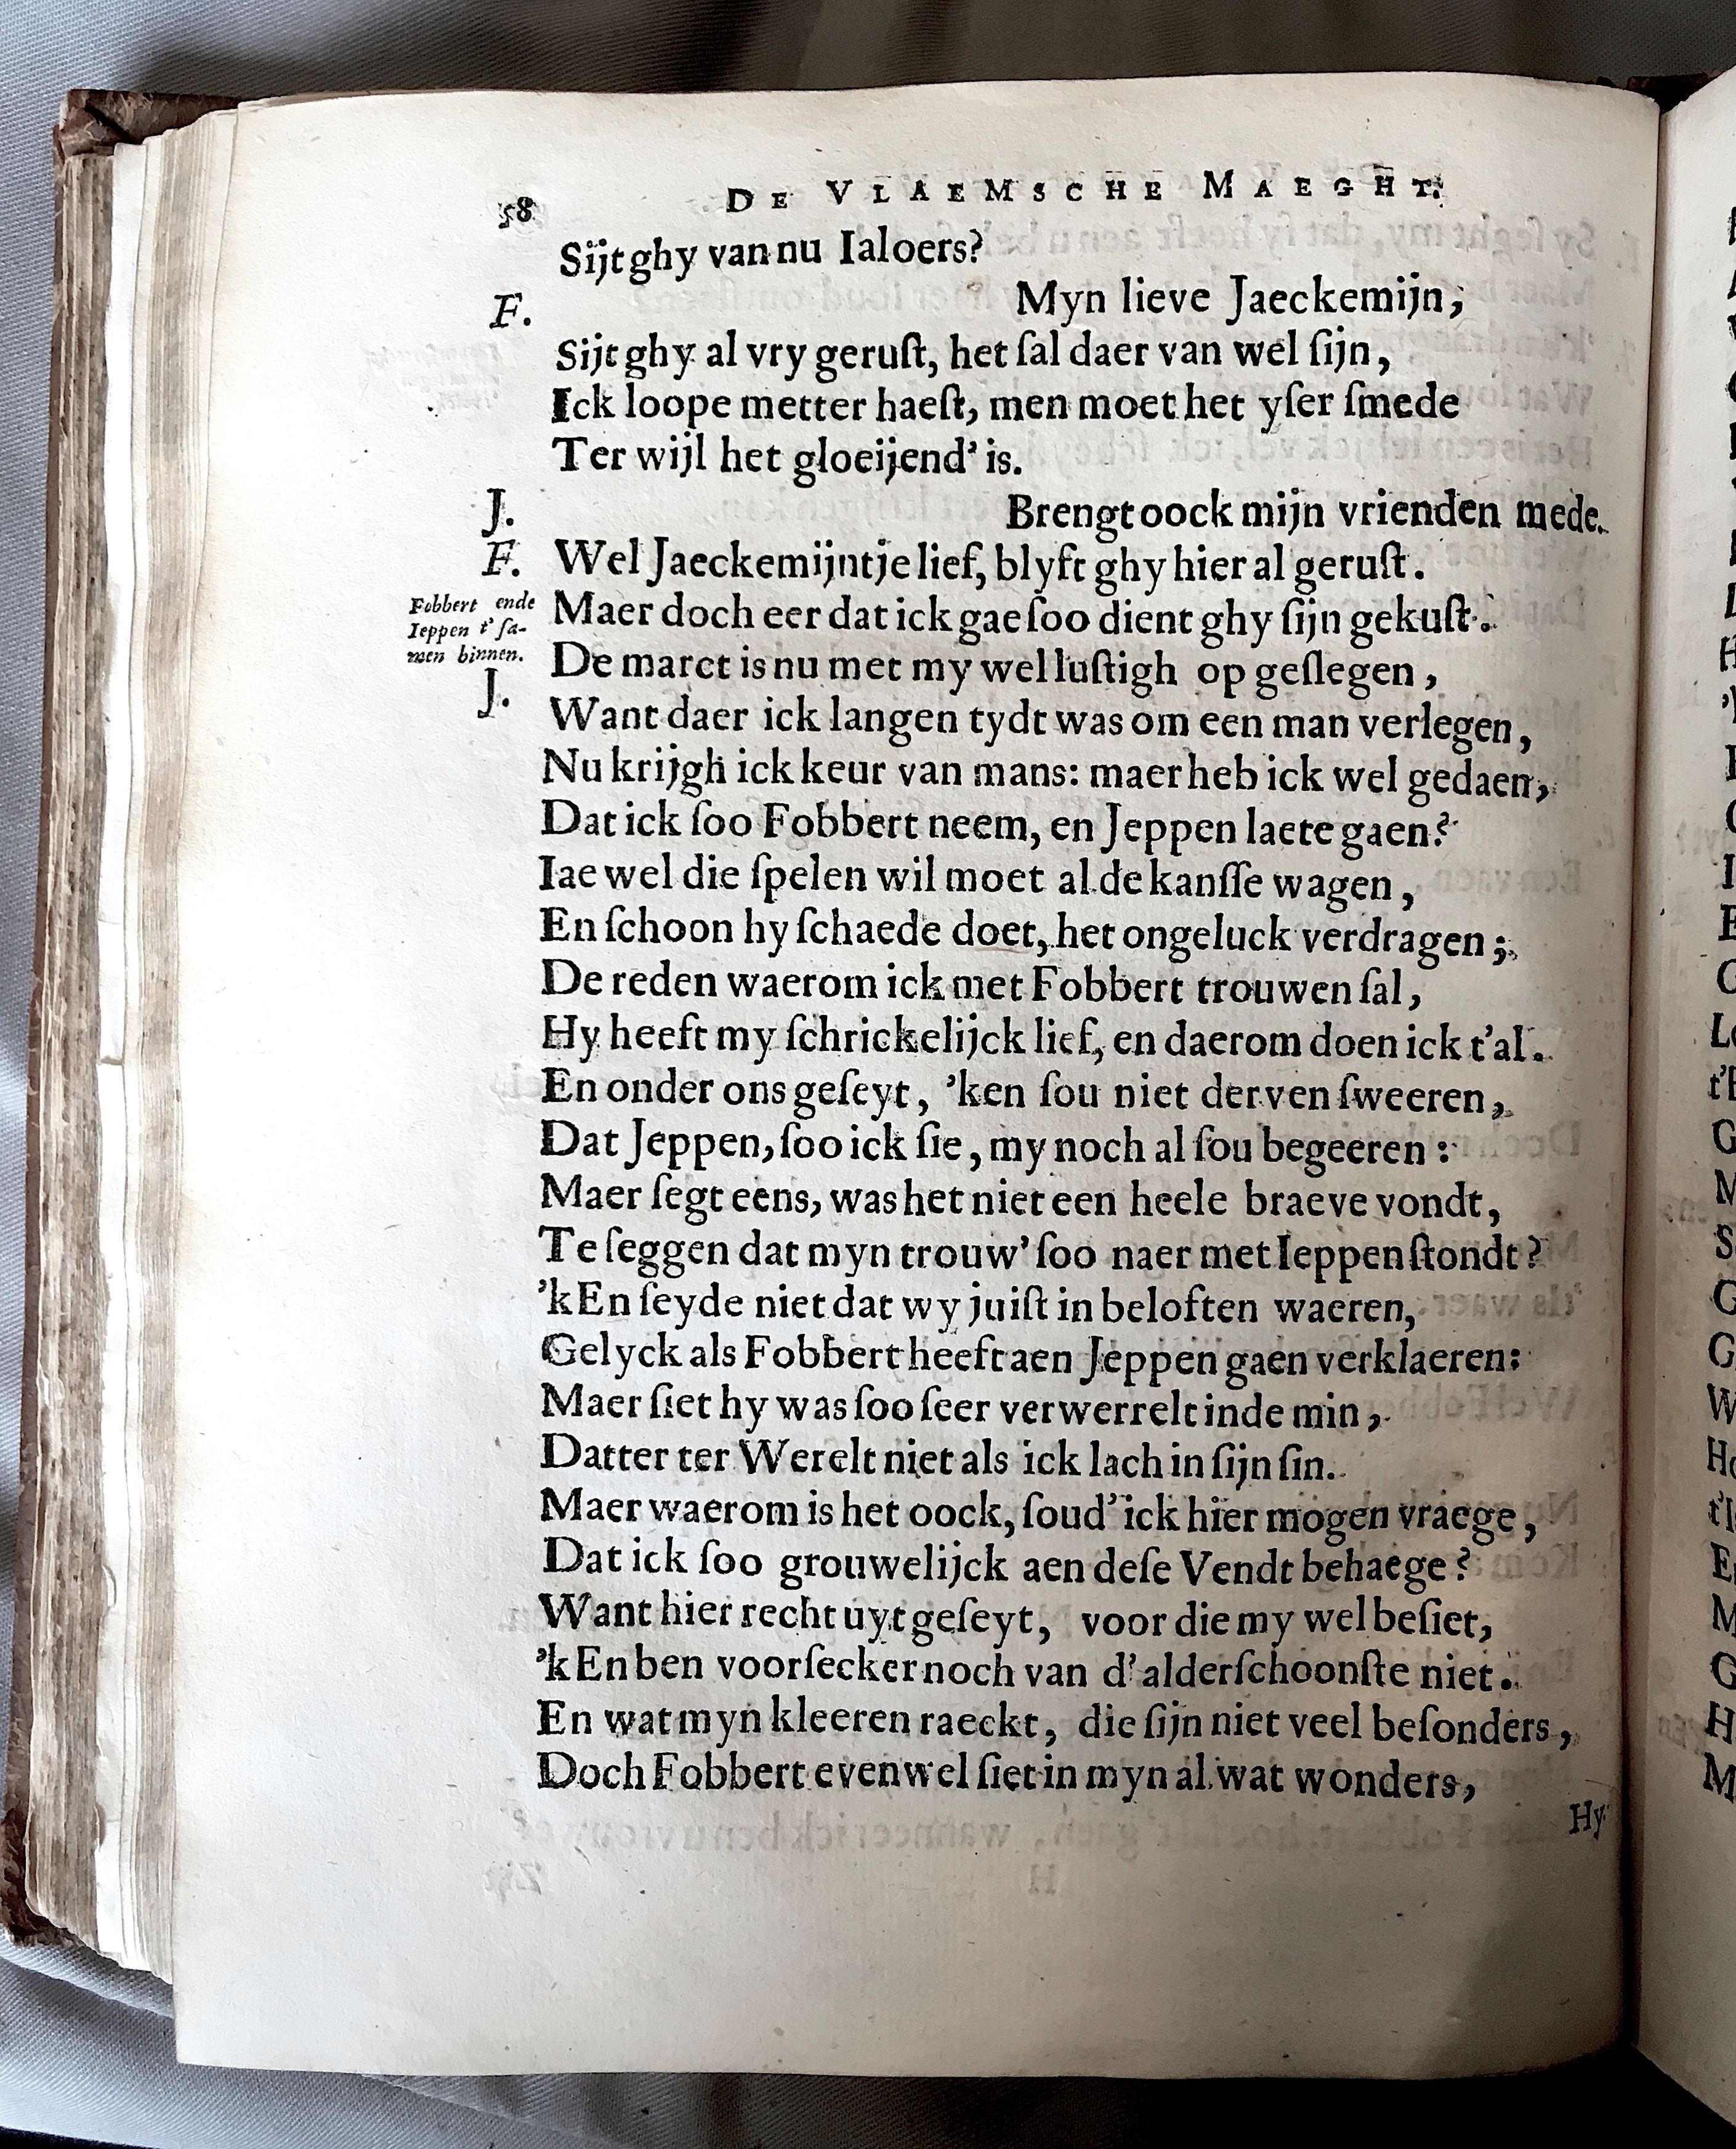 58 DE VLAEMSCHE MAEGHT.
Sijt ghy van nu Ialoers?
F. Myn lieve Jaeckemijn,
Sijt ghy al vry geruſt, het ſal daer van wel ſijn,
Ick loope metter haeſt, men moet het yſer ſmede
Ter wijl het gloeijend' is.
J. Brengt oock mijn vrienden mede.
F. Wel Jaeckemijntje lief, blyft ghy hier al geruſt.
Maer doch eer dat ick gae ſoo dient ghy ſijn gekuſt.
Fobbert ende
Ieppen t'ſa-
men binnen.
J. De marct is nu met my wel luſtigh op geſlegen,
Want daer ick langen tydt was om een man verlegen,
Nu krijgh ick keur van mans: maer heb ick wel gedaen,
Dat ick ſoo Fobbert neem, en Jeppen laete gaen?
Iae wel die ſpelen wil moet al de kanſſe wagen,
En ſchoon hy ſchaede doet, het ongeluck verdragen;
De reden waerom ick met Fobbert trouwen ſal,
Hy heeft my ſchrickelijck lief, en daerom doen ick t'al.
En onder ons geſeyt, 'ken ſou niet derven ſweeren,
Dat Jeppen, ſoo ick ſie, my noch al ſou begeeren:
Maer ſegt eens, was het niet een heele braeve vondt,
Te ſeggen dat myn trouw' ſoo naer met Ieppen ſtondt?
'kEn ſeyde niet dat wy juiſt in beloften waeren,
Gelyck als Fobbert heeft aen Jeppen gaen verklaeren:
Maer ſiet hy was ſoo ſeer verwerrelt inde min,
Datter ter Werelt niet als ick lach in ſijn ſin.
Maer waerom is het oock, ſoud' ick hier mogen vraege,
Dat ick ſoo grouwelijck aen deſe Vendt behaege?
Want hier recht uyt geſeyt, voor die my wel beſiet,
'kEn ben voorſecker noch van d'alderſchoonſte niet.
En wat myn kleeren raeckt, die ſijn niet veel beſonders,
Doch Fobbert evenwel ſiet in myn al wat wonders,
Hy